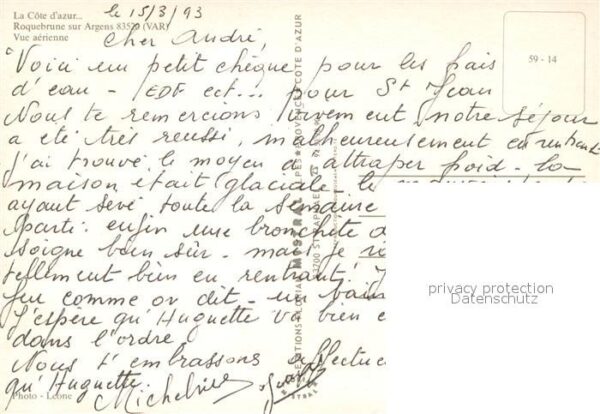 La Côte d'azur...
Roquebrune sur Argens 83520 (VAR)
Vue aérienne
le 15/3/93
Cher André,
Voici un petit chèque pour les frais
d'eau - EDF ect... pour St Jean
Nous te remercions vivement, notre séjour
a été très reussi, malheureusement en rentrant
j'ai trouvé le moyen d'attraper froid - la
maison était glaciale - le
ayant sevé toute la semaine
parti. enfin une bronchite
soigne bien sûr - mais je
tellement bien en rentrant!
feu comme on dit - un bain
J'espère qu'Huguette va bien e
dans l'ordre.
Nous t'embrassons affectue
qu'Huguette.
Micheline
Photo - Léone
59 - 14
privacy protection
Datenschutz